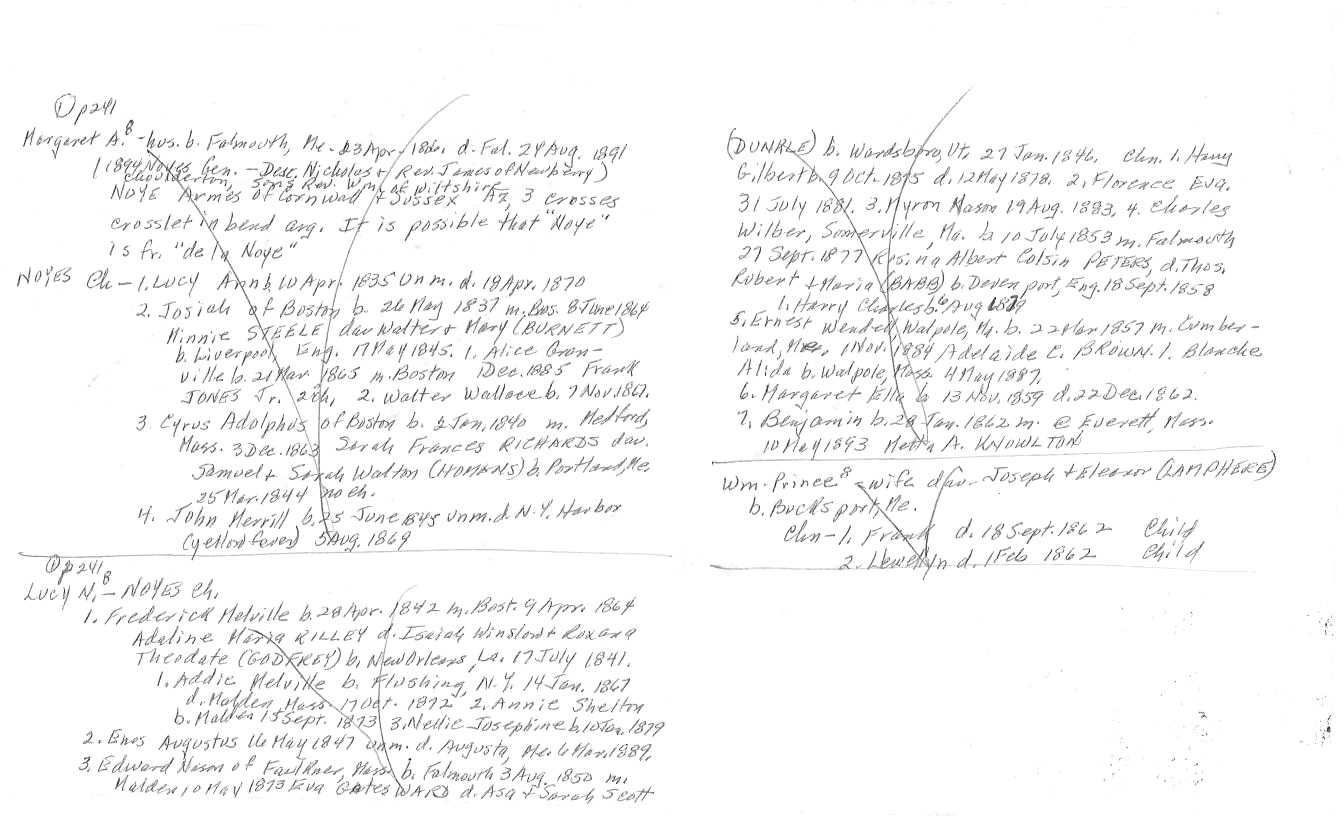 ① p241
Margaret A.⁸ - hus. b. Falmouth, Me. 23 Apr. d. Fal. 24 Aug. 1891
(1894 Noyes Gen. - Desc. Nicholas + Rev. James of Newberry)
Choulderton, sons Rev. Wm. of Wiltshire
NOYE Armes of Cornwall + Sussex Az, 3 crosses
crosslet in bend arg. It is possible that "Noye"
is fr. "de la Noye"
NOYES Ch - 1. LUCY Ann b. 10 Apr. 1835 Unm. d. 18 Apr. 1870
2. Josiah of Boston b. 26 May 1837 m. Bos. 8 June 1864
Minnie STEELE dau Walter + Mary (BURNETT)
b. Liverpool, Eng. 17 May 1845. 1. Alice Gran-
ville b. 21 Mar. 1865 m. Boston 1 Dec. 1885 Frank
JONES Jr. 2. Walter Wallace b. 7 Nov. 1867.
3 Cyrus Adolphus of Boston b. 2 Jan. 1840 m. Medford,
Mass. 3 Dec. 1863 Sarah Frances RICHARDS dau.
Samuel + Sarah Walton (HOMANS) b. Portland, Me.
25 Mar. 1844 no ch.
4. John Merrill b. 25 June 1845 unm. d. N.Y. Harbor
(yellow fever) 5 Aug. 1869
① p241
Lucy N.⁸ - NOYES Ch.
1. Frederick Melville b. 28 Apr. 1842 m. Bost. 9 Apr. 1864
Adaline Maria RILLEY d. Isaiah Winslow + Roxana
Theodate (GODFREY) b. New Orleans, La. 17 July 1841.
1. Addie Melville b. Flushing, N.Y. 14 Jan. 1867
d. Malden, Mass. 17 Oct. 1872 2. Annie Shelton
b. Malden 15 Sept. 1873 3. Nellie Josephine b. 10 Jan. 1879
2. Enos Augustus 16 May 1847 unm. d. Augusta, Me. 6 Mar. 1889.
3. Edward Nason of Faulkner, Mass. b. Falmouth 3 Aug. 1850 m.
Malden 10 May 1873 Eva Gates WARD d. Asa + Sarah Scott
(DUNKLE) b. Wardsboro, Vt. 27 Jan. 1846. Chn. 1. Harry
Gilbert b. 9 Oct. 1875 d. 12 May 1878. 2. Florence Eva.
31 July 1881. 3. Myron Mason 19 Aug. 1883, 4. Charles
Wilber, Somerville, Ma. b 10 July 1853 m. Falmouth
27 Sept. 1877 Rosina Albert Colsin PETERS, d. Thos.
Robert + Maria (BABB) b. Devenport, Eng. 18 Sept. 1858
1. Harry Charles b. 6 Aug 1879
5. Ernest Wendell Walpole, Ma. b. 22 Mar 1857 m. Cumber-
land, Me. 1 Nov. 1884 Adelaide E. BROWN. 1. Blanche
Alida b. Walpole, Mass. 4 May 1887.
6. Margaret Ella b 13 Nov. 1859 d. 22 Dec. 1862.
7. Benjamin b. 28 Jan. 1862 m. @ Everett, Mass.
10 May 1893 Metta A. KNOWLTON
Wm. Prince⁸ - wife dau. Joseph + Eleanor (LAMPHERE)
b. Bucksport, Me.
Chn - 1. Frank d. 18 Sept. 1862 Child
2. Llewellyn d. 1 Feb 1862 Child